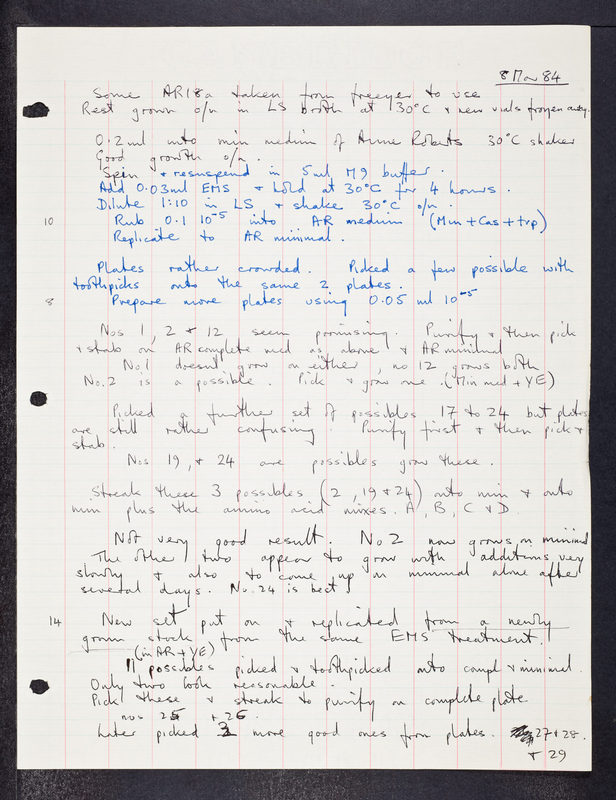 8 Mar 84
Some AR18a taken from freezer to use
Rest grown o/n in LS broth at 30°C & new vials frozen away.
0.2ml into min medium of Anne Roberts 30°C shaker
Good growth o/n.
Spin & resuspend in 5ml M9 buffer.
Add 0.03ml EMS & hold at 30°C for 4 hours.
Dilute 1:10 in LS & shake 30°C o/n.
10 Rub 0.1 10⁻⁵ into AR medium (Min+Cas+trp)
Replicate to AR minimal.
Plates rather crowded. Picked a few possible with
toothpicks onto the same 2 plates.
8 Prepare more plates using 0.05 ml 10⁻⁵
Nos 1, 2 & 12 seem promising. Purify & then pick
& stab on AR complete med as above & AR minimal
No.1 doesn't grow on either, no 12 grows both
No.2 is a possible. Pick & grow one. (Min med + YE)
Picked a further set of possibles 17 to 24 but plates
are still rather confusing. Purify first & then pick &
stab.
Nos 19, & 24 are possibles grow these.
Streak these 3 possibles. (2, 19 & 24) onto min & onto
min plus the amino acid mixes. A, B, C & D.
Not very good result. No 2 now grows on minimal
The other two appear to grow with additions very
slowly & also to come up on minimal alone after
several days. No. 24 is best.
14 New set put on & replicated from a newly
grown stock from the same EMS treatment.
(in AR+YE)
11 possibles picked & toothpicked onto compl & minimal.
Only two look reasonable.
Pick these & streak to purify on complete plate.
nos 25 & 26.
Later picked 3 more good ones from plates. 27 & 28
& 29